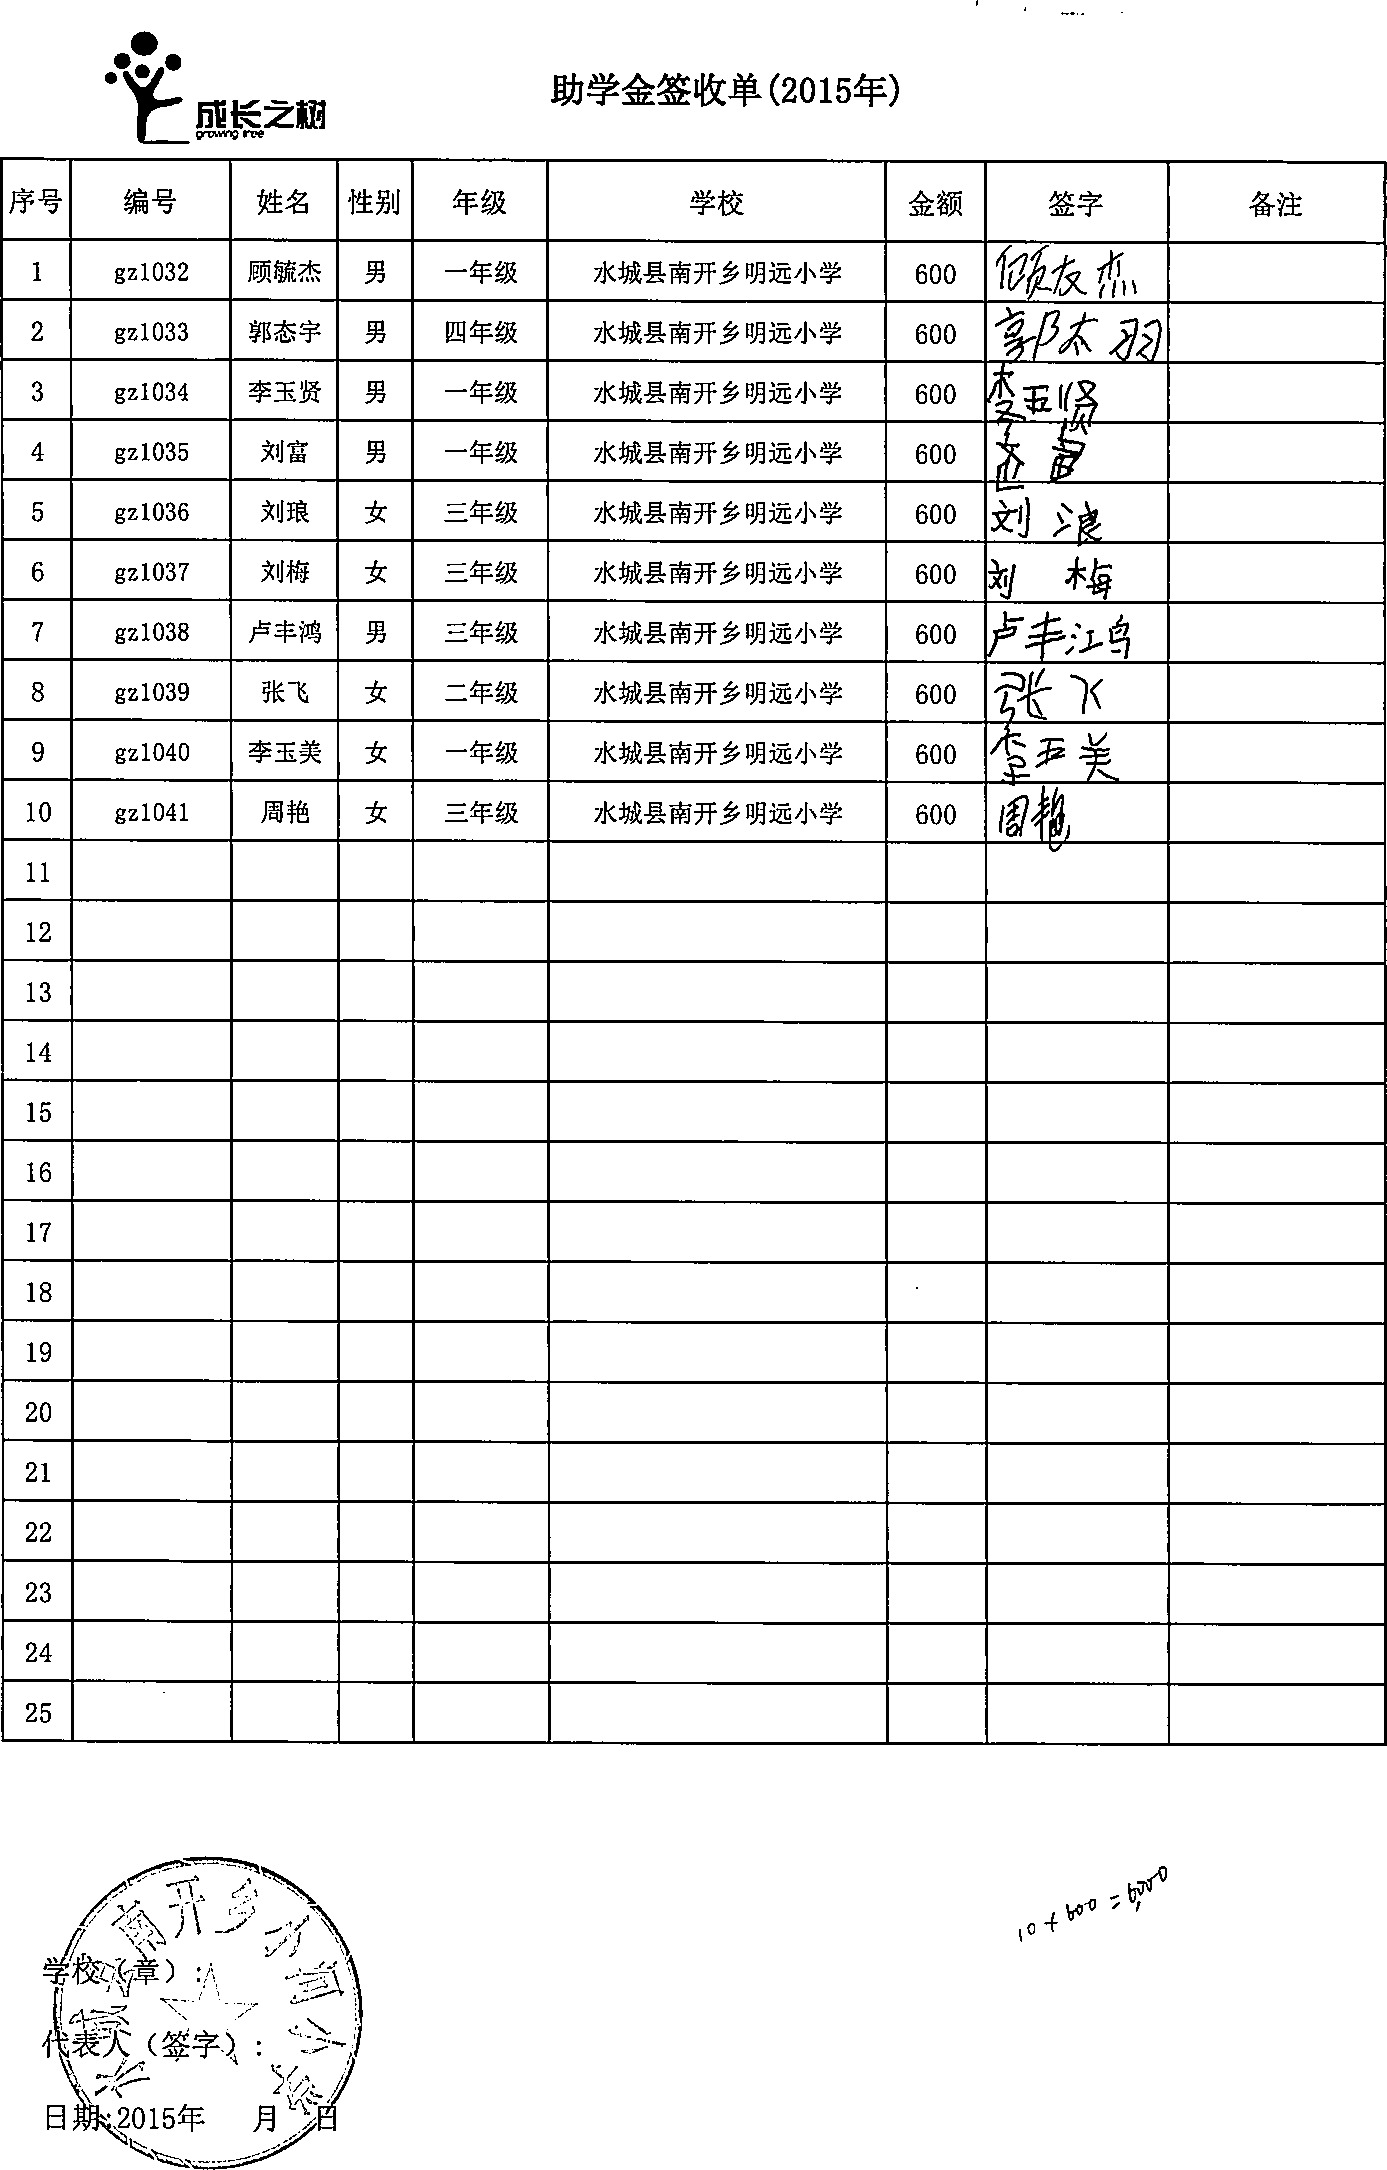 成长之树
growing tree
助学金签收单(2015年)
序号 编号 姓名 性别 年级 学校 金额 签字 备注
1 gz1032 顾毓杰 男 一年级 水城县南开乡明远小学 600 顾友杰
2 gz1033 郭态宇 男 四年级 水城县南开乡明远小学 600 郭太羽
3 gz1034 李玉贤 男 一年级 水城县南开乡明远小学 600 李五贤
4 gz1035 刘富 男 一年级 水城县南开乡明远小学 600
5 gz1036 刘琅 女 三年级 水城县南开乡明远小学 600 刘浪
6 gz1037 刘梅 女 三年级 水城县南开乡明远小学 600 刘梅
7 gz1038 卢丰鸿 男 三年级 水城县南开乡明远小学 600 卢丰鸿
8 gz1039 张飞 女 二年级 水城县南开乡明远小学 600 张飞
9 gz1040 李玉美 女 一年级 水城县南开乡明远小学 600 李五美
10 gz1041 周艳 女 三年级 水城县南开乡明远小学 600 周艳
11
12
13
14
15
16
17
18
19
20
21
22
23
24
25
10×600=6000
学校（章）:
代表人（签字）:
日期:2015年 月 日